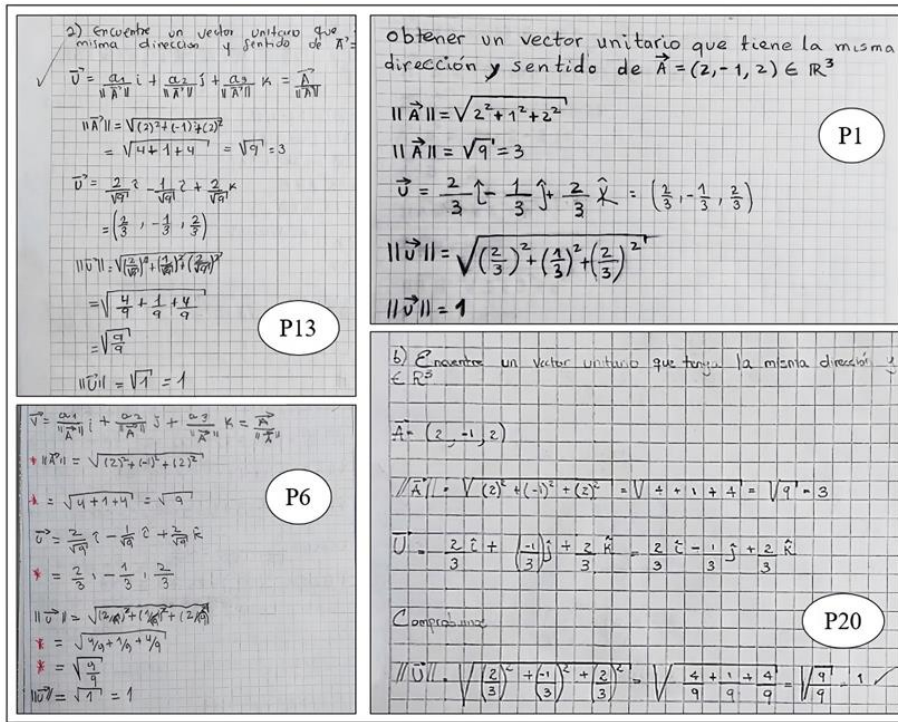 2) Encuentre un vector unitario que
misma dirección y sentido de A⃗ =
U⃗ = a1/||A⃗|| i + a2/||A⃗|| j + a3/||A⃗|| k = A⃗/||A⃗||
||A⃗|| = √(2)²+(-1)²+(2)²
= √4+1+4 = √9 = 3
U⃗ = 2/√9 î - 1/√9 î + 2/√9 k
= (2/3, -1/3, 2/3)
||U⃗|| = √(2/√9)²+(1/√9)²+(2/√9)²
= √4/9 + 1/9 + 4/9
= √9/9
||U⃗|| = √1 = 1
P13
obtener un vector unitario que tiene la misma
dirección y sentido de A⃗ = (2,-1,2) ∈ ℝ³
||A⃗|| = √2²+1²+2²
||A⃗|| = √9 = 3
U⃗ = 2/3 î - 1/3 ĵ + 2/3 k̂ = (2/3, -1/3, 2/3)
||U⃗|| = √(2/3)²+(1/3)²+(2/3)²
||U⃗|| = 1
P1
V⃗ = a1/||A⃗|| i + a2/||A⃗|| j + a3/||A⃗|| k = A⃗/||A⃗||
* ||A⃗|| = √(2)²+(-1)²+(2)²
* = √4+1+4 = √9
U⃗ = 2/√9 î - 1/√9 î + 2/√9 k̂
* = 2/3, -1/3, 2/3
||U⃗|| = √(2/√9)²+(1/√9)²+(2/√9)²
* = √4/9+1/9+4/9
* = √9/9
||U⃗|| = √1 = 1
P6
b) Encuentre un vector unitario que tenga la misma dirección y
∈ ℝ³
A⃗ = (2, -1, 2)
||A⃗|| = √(2)²+(-1)²+(2)² = √4+1+4 = √9 = 3
U⃗ = 2/3 î + (-1/3) ĵ + 2/3 k̂ = 2/3 î - 1/3 ĵ + 2/3 k̂
||U⃗|| = √(2/3)²+(-1/3)²+(2/3)² = √4/9 + 1/9 + 4/9 = √9/9 = 1 ✓
P20